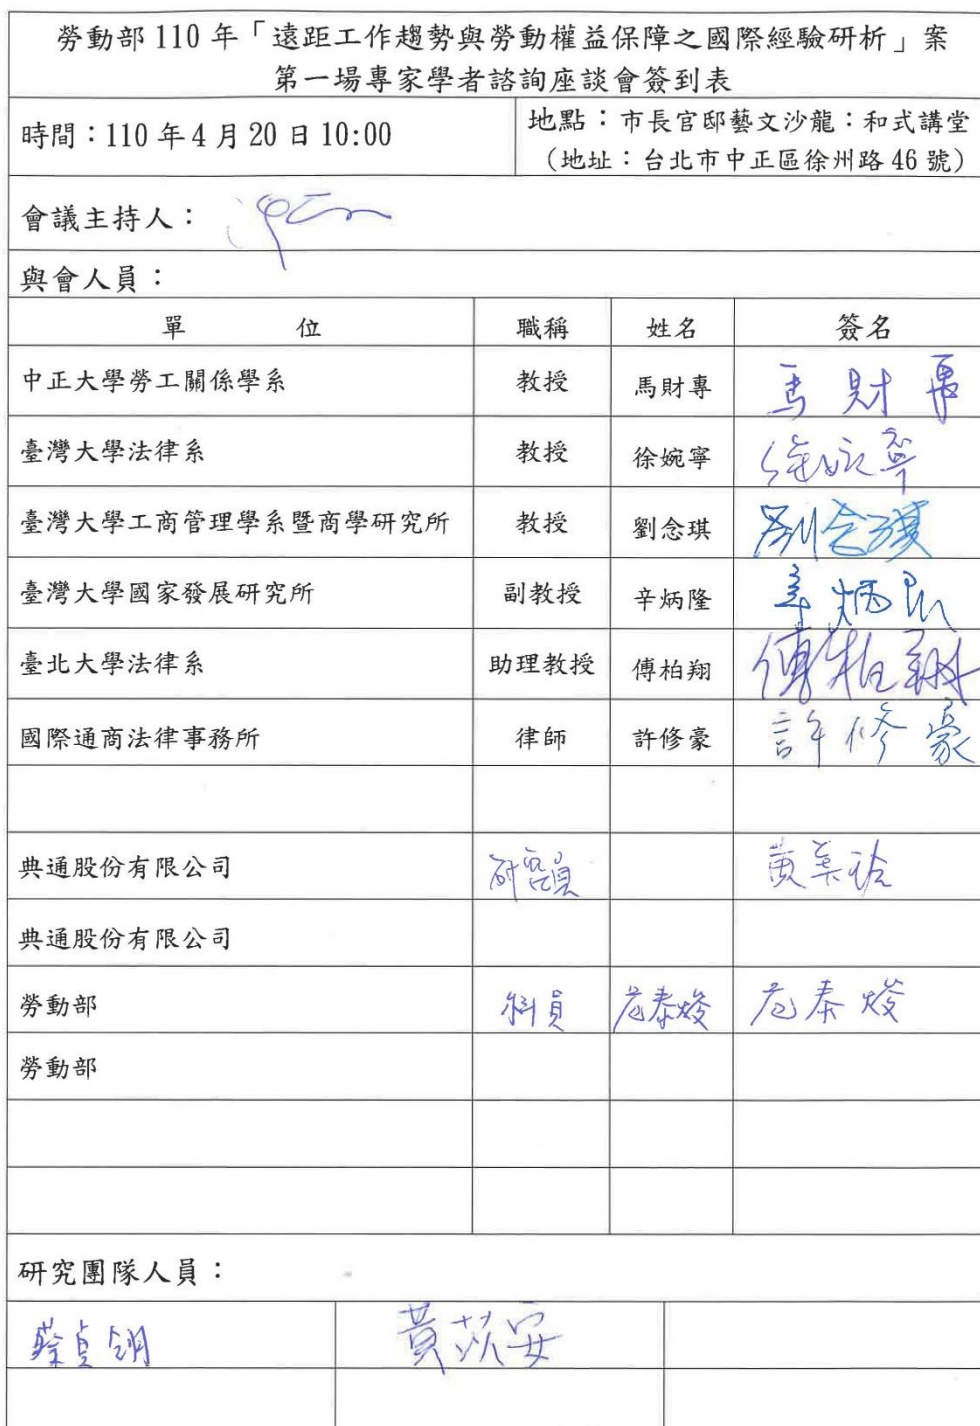 勞動部 110 年「遠距工作趨勢與勞動權益保障之國際經驗研析」案
第一場專家學者諮詢座談會簽到表
時間：110 年 4 月 20 日 10:00
地點：市長官邸藝文沙龍：和式講堂
（地址：台北市中正區徐州路 46 號）
會議主持人：
與會人員：
單 位 職稱 姓名 簽名
中正大學勞工關係學系 教授 馬財專 馬財專
臺灣大學法律系 教授 徐婉寧 徐婉寧
臺灣大學工商管理學系暨商學研究所 教授 劉念琪 劉念琪
臺灣大學國家發展研究所 副教授 辛炳隆 辛炳隆
臺北大學法律系 助理教授 傅柏翔 傅柏翔
國際通商法律事務所 律師 許修豪 許修豪
典通股份有限公司 研究員 黃美
典通股份有限公司
勞動部 科員 泰焌 泰焌
勞動部
研究團隊人員：
蔡貞 黃苡安